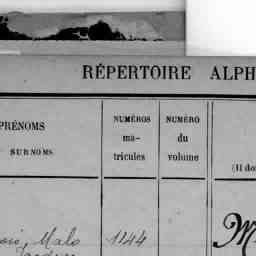 RÉPERTOIRE ALPH
PRÉNOMS
SURNOMS
NUMÉROS
ma-
tricules
NUMÉRO
du
volume
(Il do
Malo 1144